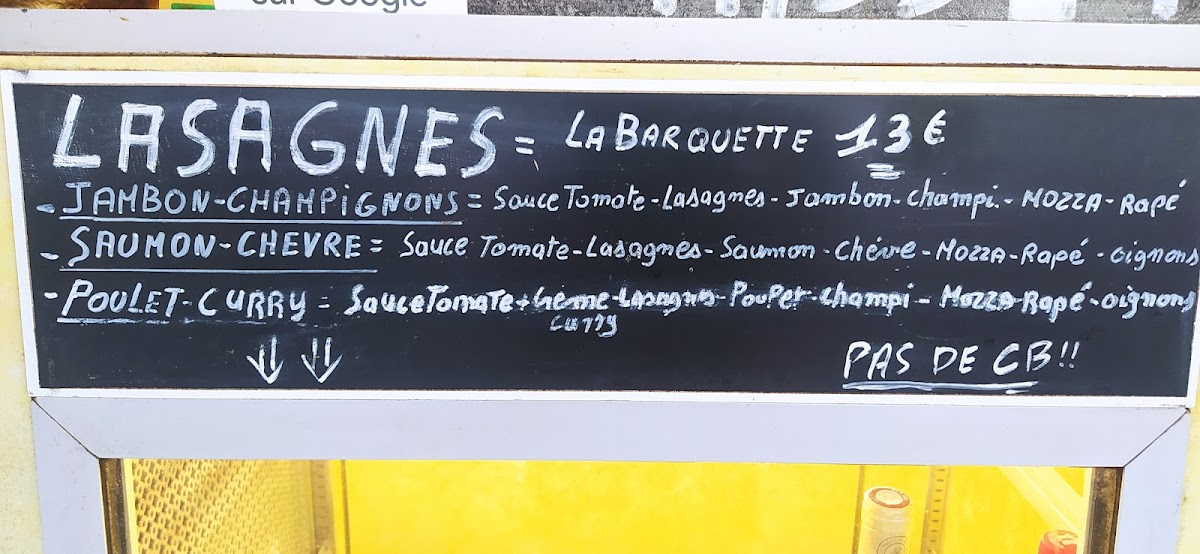 sur Google
LASAGNES = LA BARQUETTE 13 €
- JAMBON-CHAMPiGNONS = Sauce Tomate - Lasagnes - Jambon - champi. - MOZZA - RaPé
- SAUMON-CHEVRE = Sauce Tomate - Lasagnes - Saumon - Chévre - MOZZA - RaPé - oignons
- POULET-CURRY = Sauce Tomate + Crème - Lasagnes - PouPet - Champi - MOZZA - RaPé - oignons
curry
PAS DE CB!!